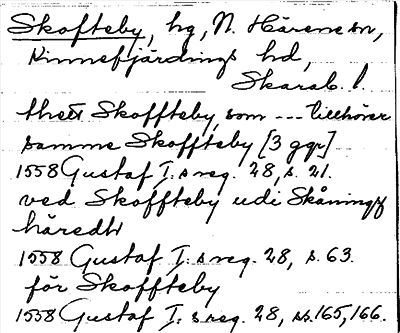 Skofteby, hg, N. Härene sn,
Kinnefjärdings hd,
Skarab. l.
thett Skoffteby, som --- tillhörer
samme Skoffteby [3 ggr]
1558 Gustaf I:s reg. 28, s. 21.
ved Skoffteby udi Skånings
häredt
1558 Gustaf I:s reg. 28, s. 63.
för Skoffteby
1558 Gustaf I:s reg. 28, ss. 165, 166.